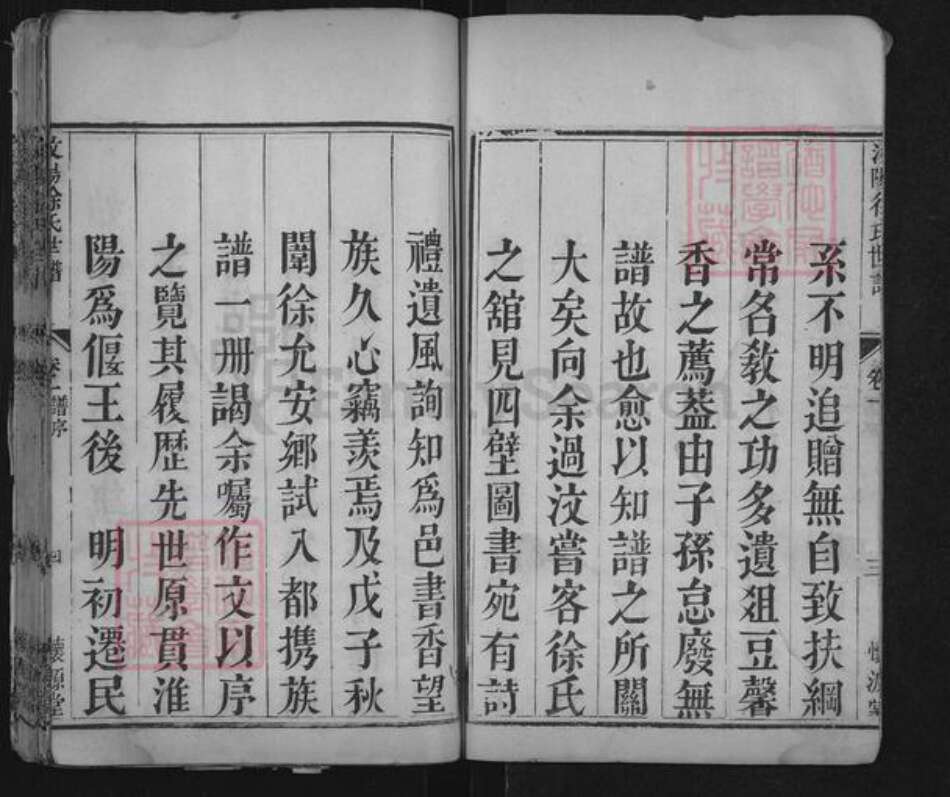 汶陽徐氏世譜 卷一 三 懷源堂
系不明追贈無自致扶綱
常名教之功多遺俎豆馨
香之薦葢由子孫怠廢無
譜故也愈以知譜之所關
大矣向余過汶嘗客徐氏
之舘見四壁圖書宛有詩
禮遺風詢知爲邑書香望
族久心竊羡焉及戊子秋
闈徐允安鄉試入都携族
譜一册謁余囑作文以序
之覽其履歴先世原貫淮
陽爲偃王後 明初遷民
汶陽徐氏世譜 卷一 譜序 四 懷源堂